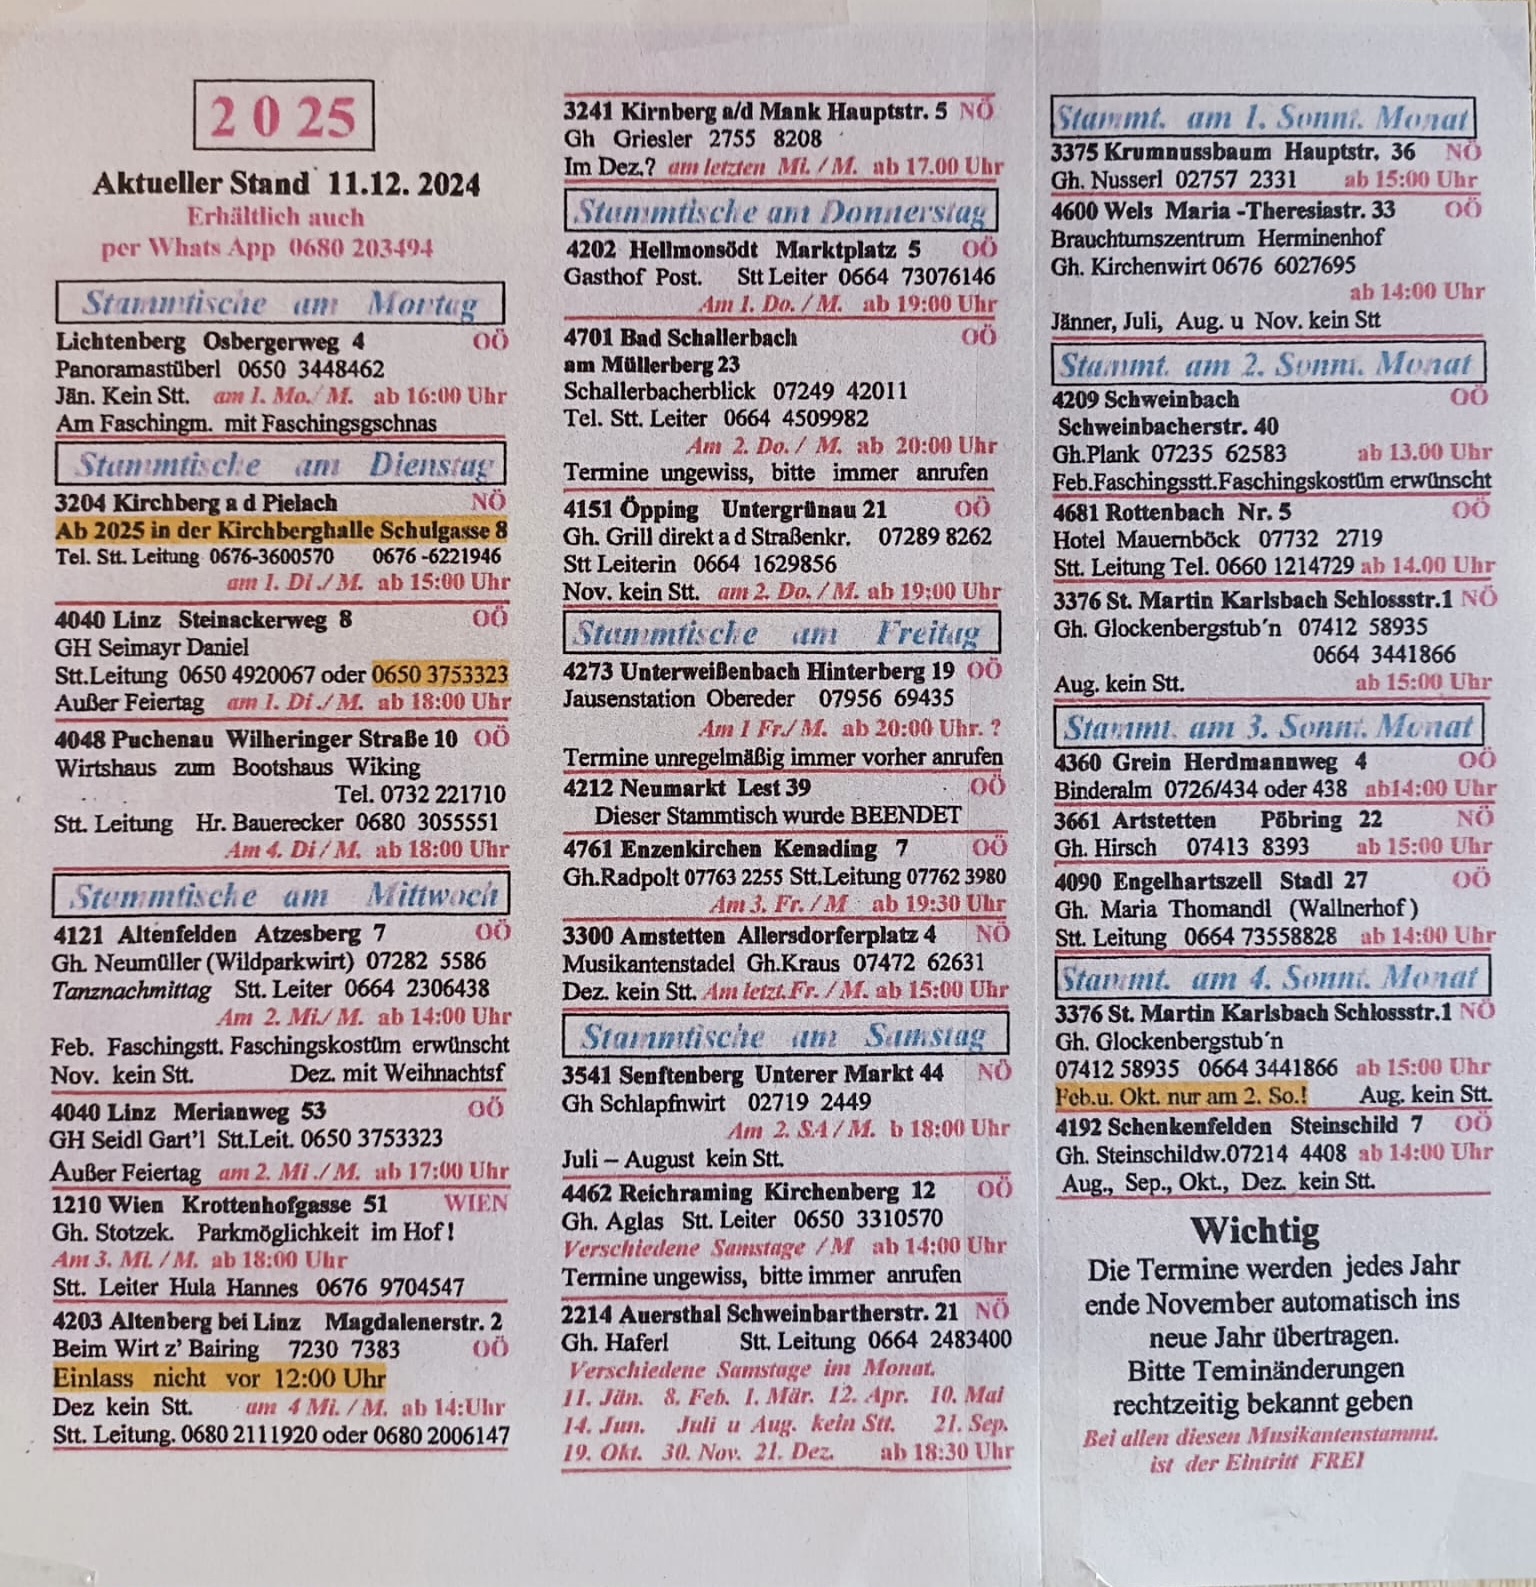 2 0 25
Aktueller Stand 11.12. 2024
Erhältlich auch
per Whats App 0680 203494
Stammtische am Montag
Lichtenberg Osbergerweg 4 OÖ
Panoramastüberl 0650 3448462
Jän. Kein Stt. am 1. Mo./ M. ab 16:00 Uhr
Am Faschingm. mit Faschingsgschnas
Stammtische am Dienstag
3204 Kirchberg a d Pielach NÖ
Ab 2025 in der Kirchberghalle Schulgasse 8
Tel. Stt. Leitung 0676-3600570 0676 -6221946
am 1. Di ./ M. ab 15:00 Uhr
4040 Linz Steinackerweg 8 OÖ
GH Seimayr Daniel
Stt.Leitung 0650 4920067 oder 0650 3753323
Außer Feiertag am 1. Di ./ M. ab 18:00 Uhr
4048 Puchenau Wilheringer Straße 10 OÖ
Wirtshaus zum Bootshaus Wiking
Tel. 0732 221710
Stt. Leitung Hr. Bauerecker 0680 3055551
Am 4. Di / M. ab 18:00 Uhr
Stammtische am Mittwoch
4121 Altenfelden Atzesberg 7 OÖ
Gh. Neumüller (Wildparkwirt) 07282 5586
Tanznachmittag Stt. Leiter 0664 2306438
Am 2. Mi./ M. ab 14:00 Uhr
Feb. Faschingstt. Faschingskostüm erwünscht
Nov. kein Stt. Dez. mit Weihnachtsf
4040 Linz Merianweg 53 OÖ
GH Seidl Gart'l Stt.Leit. 0650 3753323
Außer Feiertag am 2. Mi ./ M. ab 17:00 Uhr
1210 Wien Krottenhofgasse 51 WIEN
Gh. Stotzek. Parkmöglichkeit im Hof !
Am 3. Mi. / M. ab 18:00 Uhr
Stt. Leiter Hula Hannes 0676 9704547
4203 Altenberg bei Linz Magdalenerstr. 2
Beim Wirt z' Bairing 7230 7383 OÖ
Einlass nicht vor 12:00 Uhr
Dez kein Stt. am 4 Mi. / M. ab 14:Uhr
Stt. Leitung. 0680 2111920 oder 0680 2006147
3241 Kirnberg a/d Mank Hauptstr. 5 NÖ
Gh Griesler 2755 8208
Im Dez.? am letzten Mi. / M. ab 17.00 Uhr
Stammtische am Donnerstag
4202 Hellmonsödt Marktplatz 5 OÖ
Gasthof Post. Stt Leiter 0664 73076146
Am 1. Do. / M. ab 19:00 Uhr
4701 Bad Schallerbach OÖ
am Müllerberg 23
Schallerbacherblick 07249 42011
Tel. Stt. Leiter 0664 4509982
Am 2. Do. / M. ab 20:00 Uhr
Termine ungewiss, bitte immer anrufen
4151 Öpping Untergrünau 21 OÖ
Gh. Grill direkt a d Straßenkr. 07289 8262
Stt Leiterin 0664 1629856
Nov. kein Stt. am 2. Do. / M. ab 19:00 Uhr
Stammtische am Freitag
4273 Unterweißenbach Hinterberg 19 OÖ
Jausenstation Obereder 07956 69435
Am 1 Fr./ M. ab 20:00 Uhr. ?
Termine unregelmäßig immer vorher anrufen
4212 Neumarkt Lest 39 OÖ
Dieser Stammtisch wurde BEENDET
4761 Enzenkirchen Kenading 7 OÖ
Gh.Radpolt 07763 2255 Stt.Leitung 07762 3980
Am 3. Fr. / M ab 19:30 Uhr
3300 Amstetten Allersdorferplatz 4 NÖ
Musikantenstadel Gh.Kraus 07472 62631
Dez. kein Stt. Am letzt.Fr. / M. ab 15:00 Uhr
Stammtische am Samstag
3541 Senftenberg Unterer Markt 44 NÖ
Gh Schlapfnwirt 02719 2449
Am 2. SA / M. b 18:00 Uhr
Juli – August kein Stt.
4462 Reichraming Kirchenberg 12 OÖ
Gh. Aglas Stt. Leiter 0650 3310570
Verschiedene Samstage / M ab 14:00 Uhr
Termine ungewiss, bitte immer anrufen
2214 Auersthal Schweinbartherstr. 21 NÖ
Gh. Haferl Stt. Leitung 0664 2483400
Verschiedene Samstage im Monat.
11. Jän. 8. Feb. 1. Mär. 12. Apr. 10. Mai
14. Jun. Juli u Aug. kein Stt. 21. Sep.
19. Okt. 30. Nov. 21. Dez. ab 18:30 Uhr
Stammt. am 1. Sonnt. Monat
3375 Krumnussbaum Hauptstr. 36 NÖ
Gh. Nusserl 02757 2331 ab 15:00 Uhr
4600 Wels Maria -Theresiastr. 33 OÖ
Brauchtumszentrum Herminenhof
Gh. Kirchenwirt 0676 6027695
ab 14:00 Uhr
Jänner, Juli, Aug. u Nov. kein Stt
Stammt. am 2. Sonnt. Monat
4209 Schweinbach OÖ
Schweinbacherstr. 40
Gh.Plank 07235 62583 ab 13.00 Uhr
Feb.Faschingsstt.Faschingskostüm erwünscht
4681 Rottenbach Nr. 5 OÖ
Hotel Mauernböck 07732 2719
Stt. Leitung Tel. 0660 1214729 ab 14.00 Uhr
3376 St. Martin Karlsbach Schlossstr.1 NÖ
Gh. Glockenbergstub´n 07412 58935
0664 3441866
Aug. kein Stt. ab 15:00 Uhr
Stammt. am 3. Sonnt. Monat
4360 Grein Herdmannweg 4 OÖ
Binderalm 0726/434 oder 438 ab14:00 Uhr
3661 Artstetten Pöbring 22 NÖ
Gh. Hirsch 07413 8393 ab 15:00 Uhr
4090 Engelhartszell Stadl 27 OÖ
Gh. Maria Thomandl (Wallnerhof )
Stt. Leitung 0664 73558828 ab 14:00 Uhr
Stammt. am 4. Sonnt. Monat
3376 St. Martin Karlsbach Schlossstr.1 NÖ
Gh. Glockenbergstub´n
07412 58935 0664 3441866 ab 15:00 Uhr
Feb.u. Okt. nur am 2. So.! Aug. kein Stt.
4192 Schenkenfelden Steinschild 7 OÖ
Gh. Steinschildw.07214 4408 ab 14:00 Uhr
Aug., Sep., Okt., Dez. kein Stt.
Wichtig
Die Termine werden jedes Jahr
ende November automatisch ins
neue Jahr übertragen.
Bitte Teminänderungen
rechtzeitig bekannt geben
Bei allen diesen Musikantenstammt.
ist der Eintritt FREI